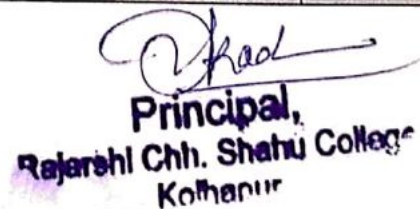 Principal,
Rajarshi Chh. Shahu College
Kolhapur